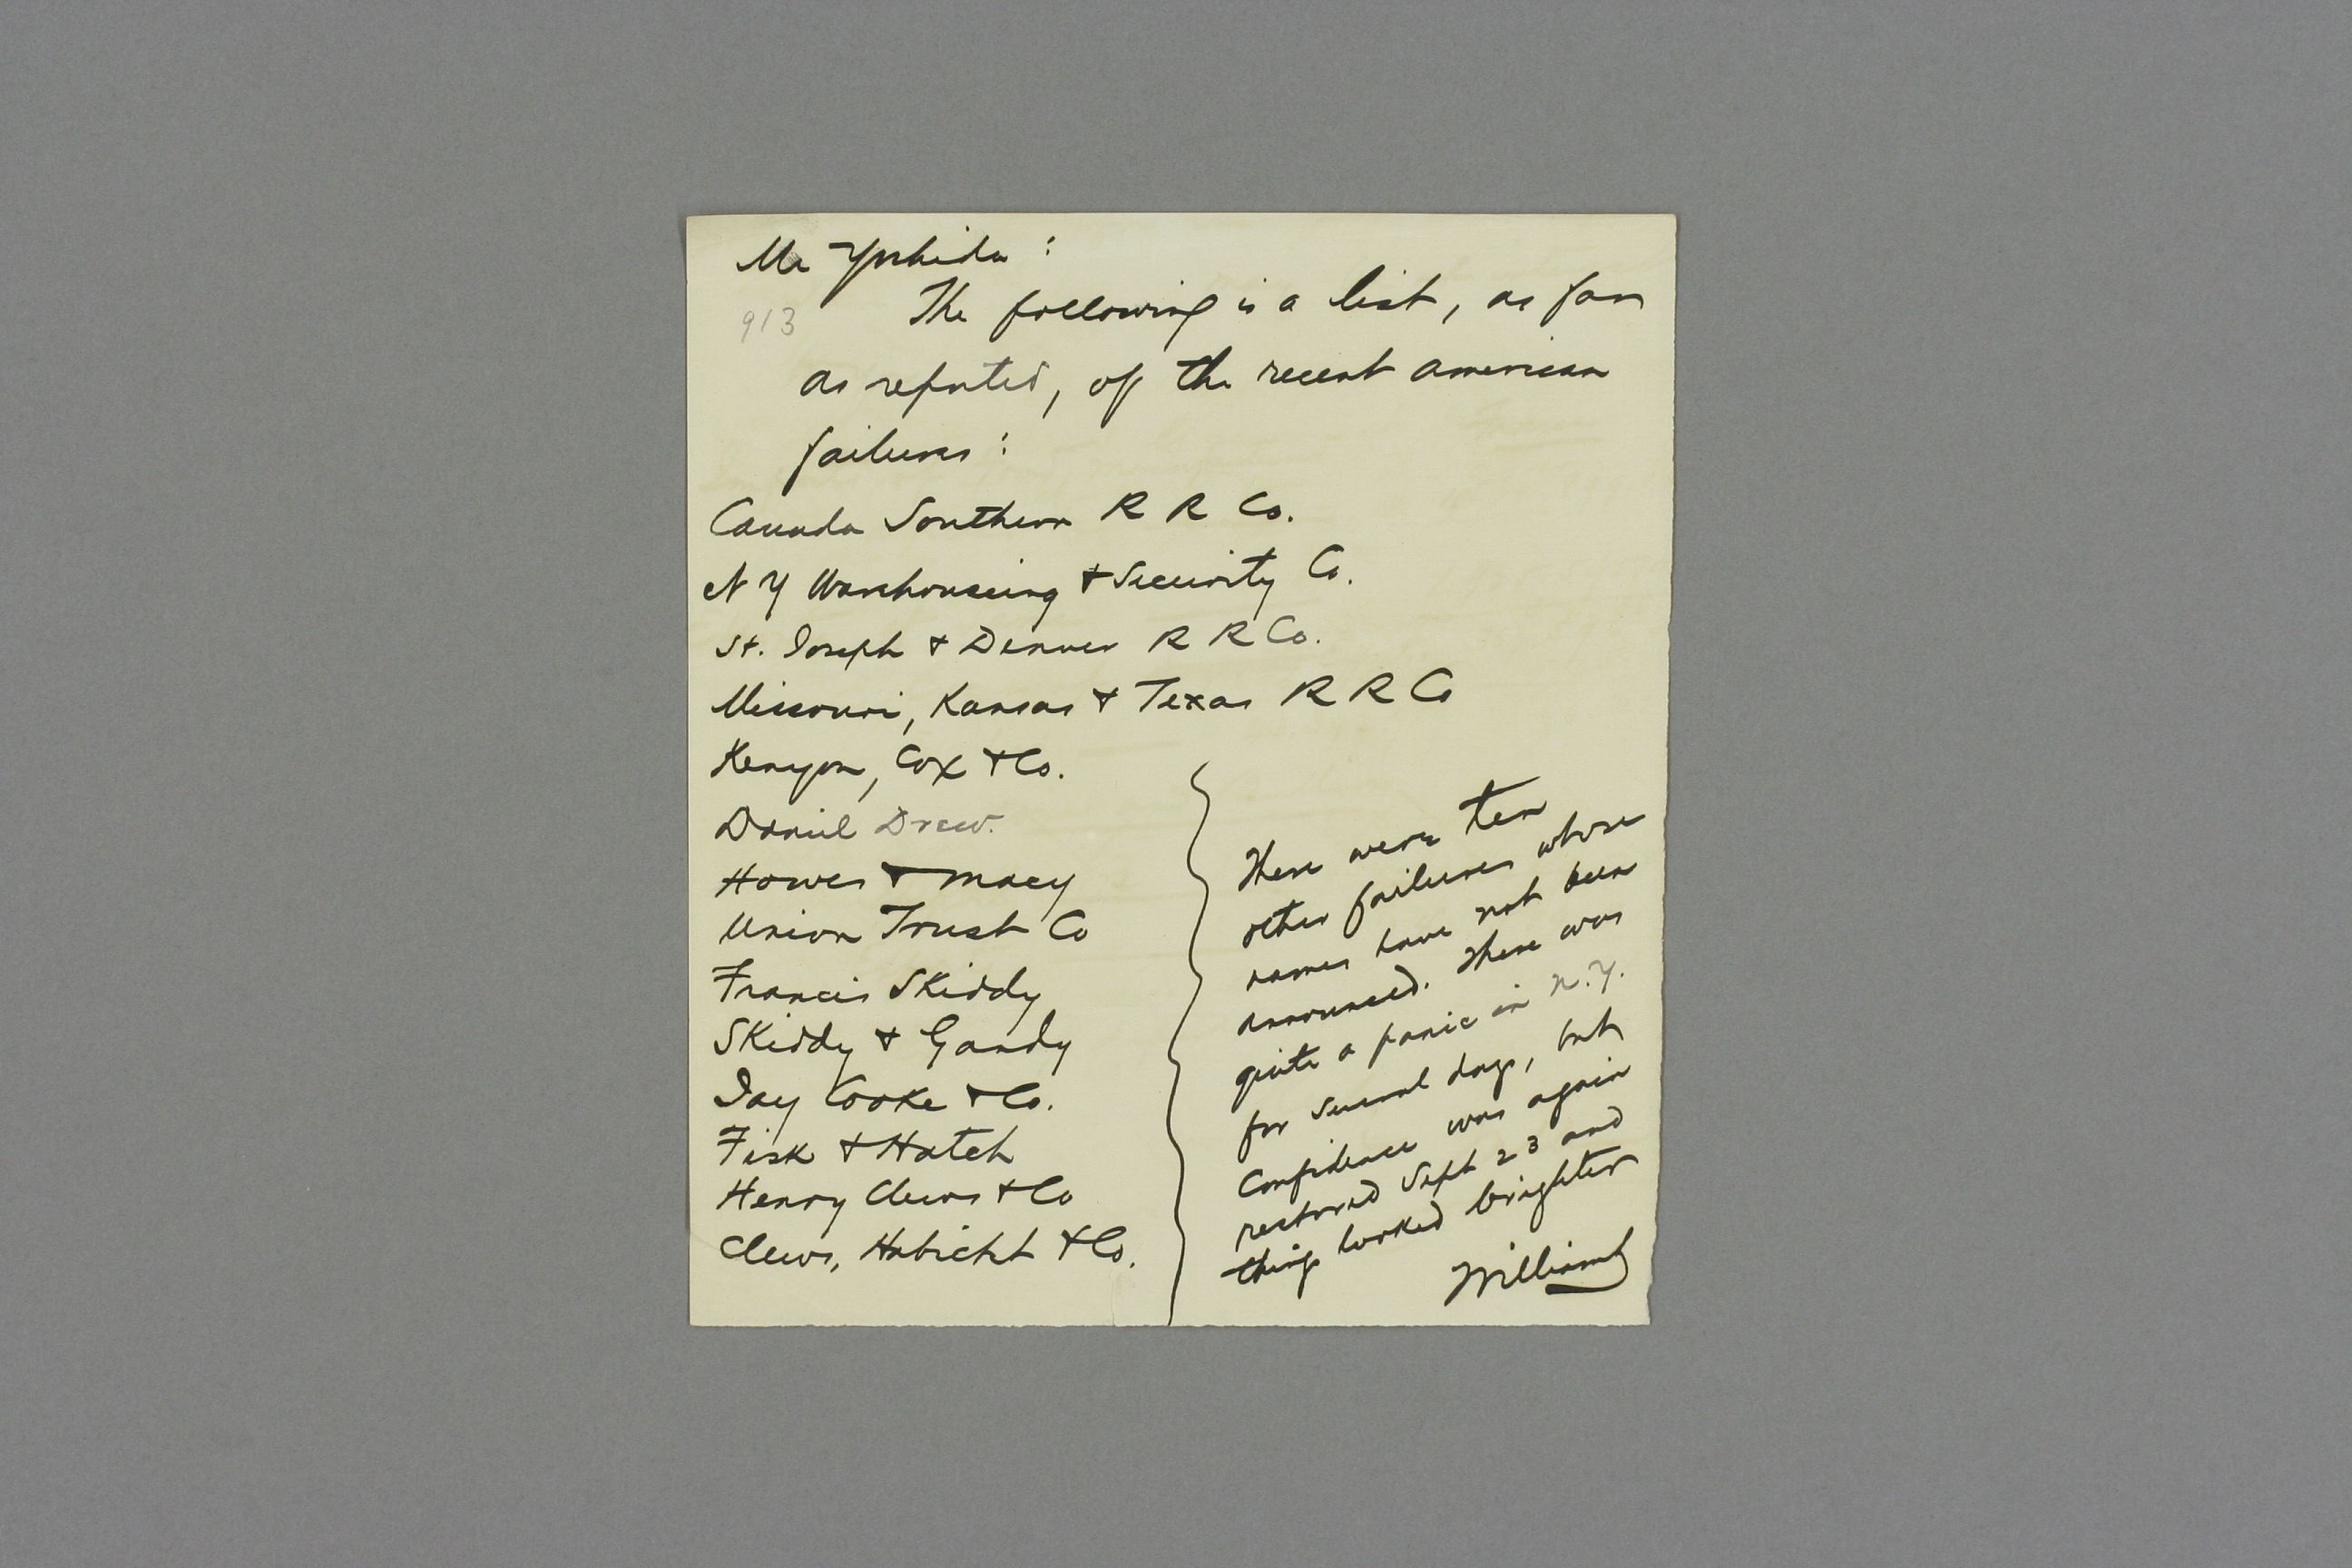 Mr Yoshida :
913
The following is a list, as far
as reported, of the recent American
failures :
Canada Southern R R Co.
N Y Warehouseing & Security Co.
St. Joseph & Denver R R Co.
Missouri, Kansas & Texas R R Co
Kenyon, Cox & Co.
Daniel Drew.
Howes & Macy
Union Trust Co
Francis Skiddy
Skiddy & Gandy
Jay Cooke & Co.
Fisk & Hatch
Henry Clews & Co
Clews, Habicht & Co.
There were ten
other failures whose
names have not been
announced. There was
quite a panic in N.Y.
for several days, but
Confidence was again
restored Sept 23 and
things looked brighter
Williams